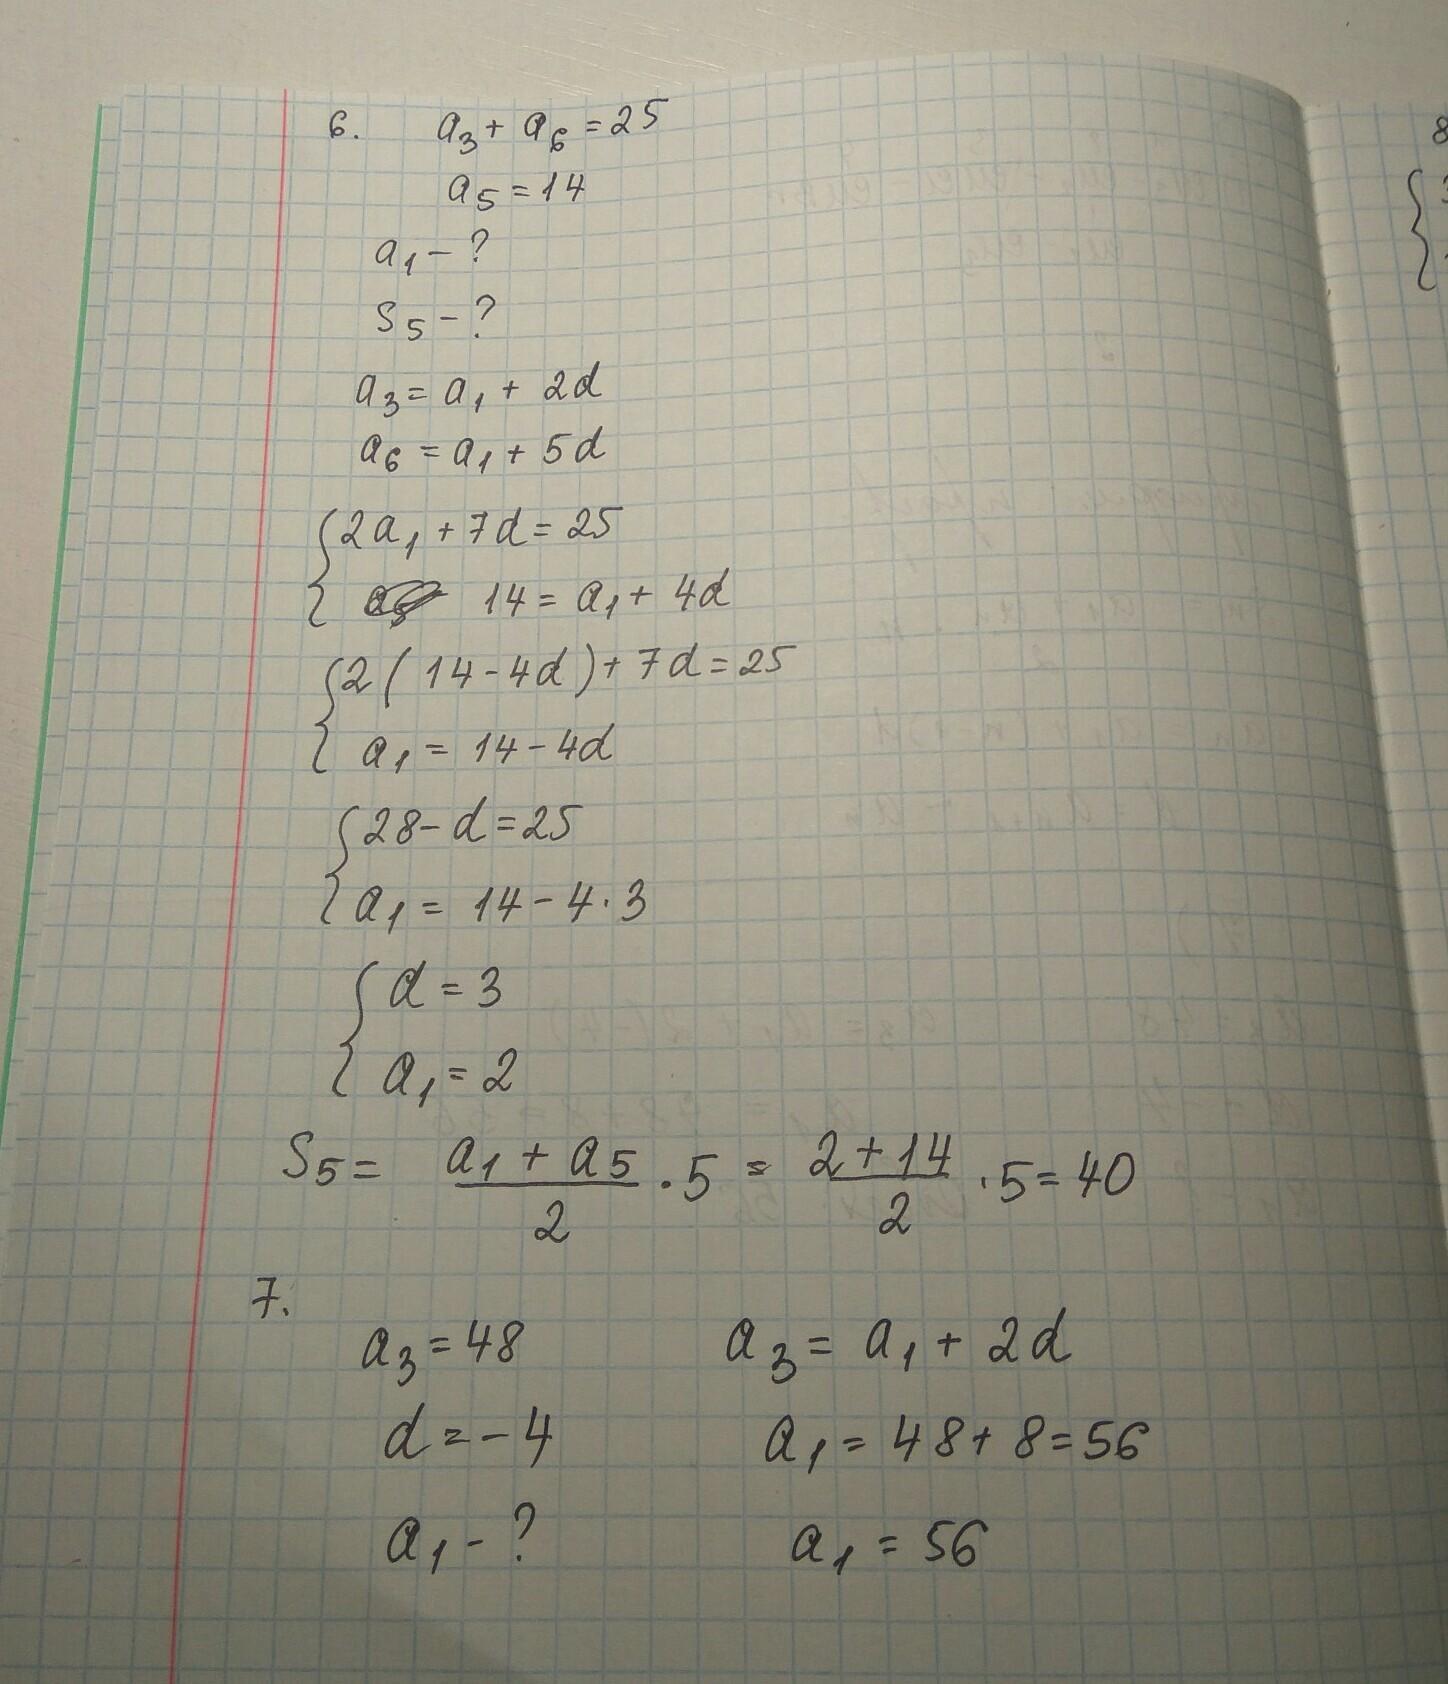 6. a₃ + a₆ = 25
a₅ = 14
a₁ - ?
S₅ - ?
a₃ = a₁ + 2d
a₆ = a₁ + 5d
{2a₁ + 7d = 25
14 = a₁ + 4d
{2(14 - 4d) + 7d = 25
a₁ = 14 - 4d
{28 - d = 25
a₁ = 14 - 4·3
{d = 3
a₁ = 2
S₅ = (a₁ + a₅)/2 · 5 = (2 + 14)/2 · 5 = 40
7.
a₃ = 48 a₃ = a₁ + 2d
d = -4 a₁ = 48 + 8 = 56
a₁ - ? a₁ = 56
8